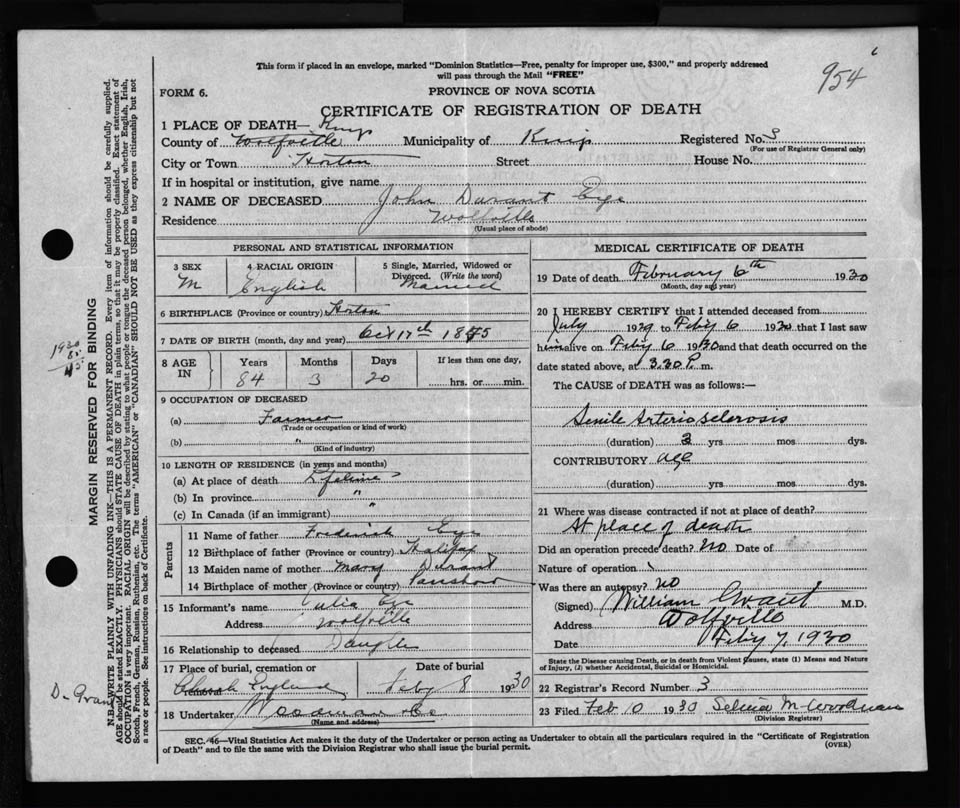 954
This form if placed in an envelope, marked "Dominion Statistics—Free, penalty for improper use, $300," and properly addressed
will pass through the Mail "FREE"
FORM 6.
PROVINCE OF NOVA SCOTIA
CERTIFICATE OF REGISTRATION OF DEATH
1 PLACE OF DEATH— Kings
County of Wolfville Municipality of Kings Registered No. 3
(For use of Registrar General only)
City or Town Horton Street House No.
If in hospital or institution, give name
2 NAME OF DECEASED John Durant Eye
Residence Wolfville
(Usual place of abode)
PERSONAL AND STATISTICAL INFORMATION
3 SEX M
4 RACIAL ORIGIN English
5 Single, Married, Widowed or Divorced. (Write the word) Married
6 BIRTHPLACE (Province or country) Horton
7 DATE OF BIRTH (month, day and year) Oct 17th 1845
8 AGE IN
Years Months Days If less than one day,
84 3 20 hrs. or min.
9 OCCUPATION OF DECEASED
(a) Farmer
(Trade or occupation or kind of work)
(b) "
(Kind of industry)
10 LENGTH OF RESIDENCE (in years and months)
(a) At place of death Lifetime
(b) In province "
(c) In Canada (if an immigrant) "
Parents
11 Name of father Frederick Eye
12 Birthplace of father (Province or country) Halifax
13 Maiden name of mother Mary Durant
14 Birthplace of mother (Province or country)
15 Informant's name Julia Eye
Address Wolfville
16 Relationship to deceased Daughter
17 Place of burial, cremation or
Church England
Date of burial
Feby 8 1930
18 Undertaker Woodman & Co
(Name and address)
MEDICAL CERTIFICATE OF DEATH
19 Date of death February 6th 1930
(Month, day and year)
20 I HEREBY CERTIFY that I attended deceased from
July 1929 to Feby 6 1930 that I last saw
him alive on Feby 6 1930 and that death occurred on the
date stated above, at 3.30 P. m.
The CAUSE of DEATH was as follows:—
Senile Arterio sclerosis
(duration) 3 yrs. mos. dys.
CONTRIBUTORY age
(duration) yrs. mos. dys.
21 Where was disease contracted if not at place of death?
At place of death
Did an operation precede death? no Date of
Nature of operation
Was there an autopsy? no
(Signed) William Grant M.D.
Address Wolfville
Date Feby 7, 1930
State the Disease causing Death, or in death from Violent Causes, state (1) Means and Nature
of Injury, (2) whether Accidental, Suicidal or Homicidal.
22 Registrar's Record Number 3
23 Filed Feb 10 1930 Selina M Woodman
(Division Registrar)
SEC. 46—Vital Statistics Act makes it the duty of the Undertaker or person acting as Undertaker to obtain all the particulars required in the "Certificate of Registration
of Death" and to file the same with the Division Registrar who shall issue the burial permit.
(OVER)
MARGIN RESERVED FOR BINDING
N.B.—WRITE PLAINLY WITH UNFADING INK—THIS IS A PERMANENT RECORD. Every item of information should be carefully supplied.
AGE should be stated EXACTLY. PHYSICIANS should STATE CAUSE OF DEATH in plain terms, so that it may be properly classified. Exact statement of
OCCUPATION is very important. RACIAL ORIGIN will be described by stating to what people or tongue the deceased person belonged, whether English, Irish,
Scotch, French, German, Russian, Ruthenian, etc. The terms "AMERICAN" or "CANADIAN" SHOULD NOT BE USED as they express citizenship but not
a race or people. See instructions on back of Certificate.
1930
85
Dr Grant